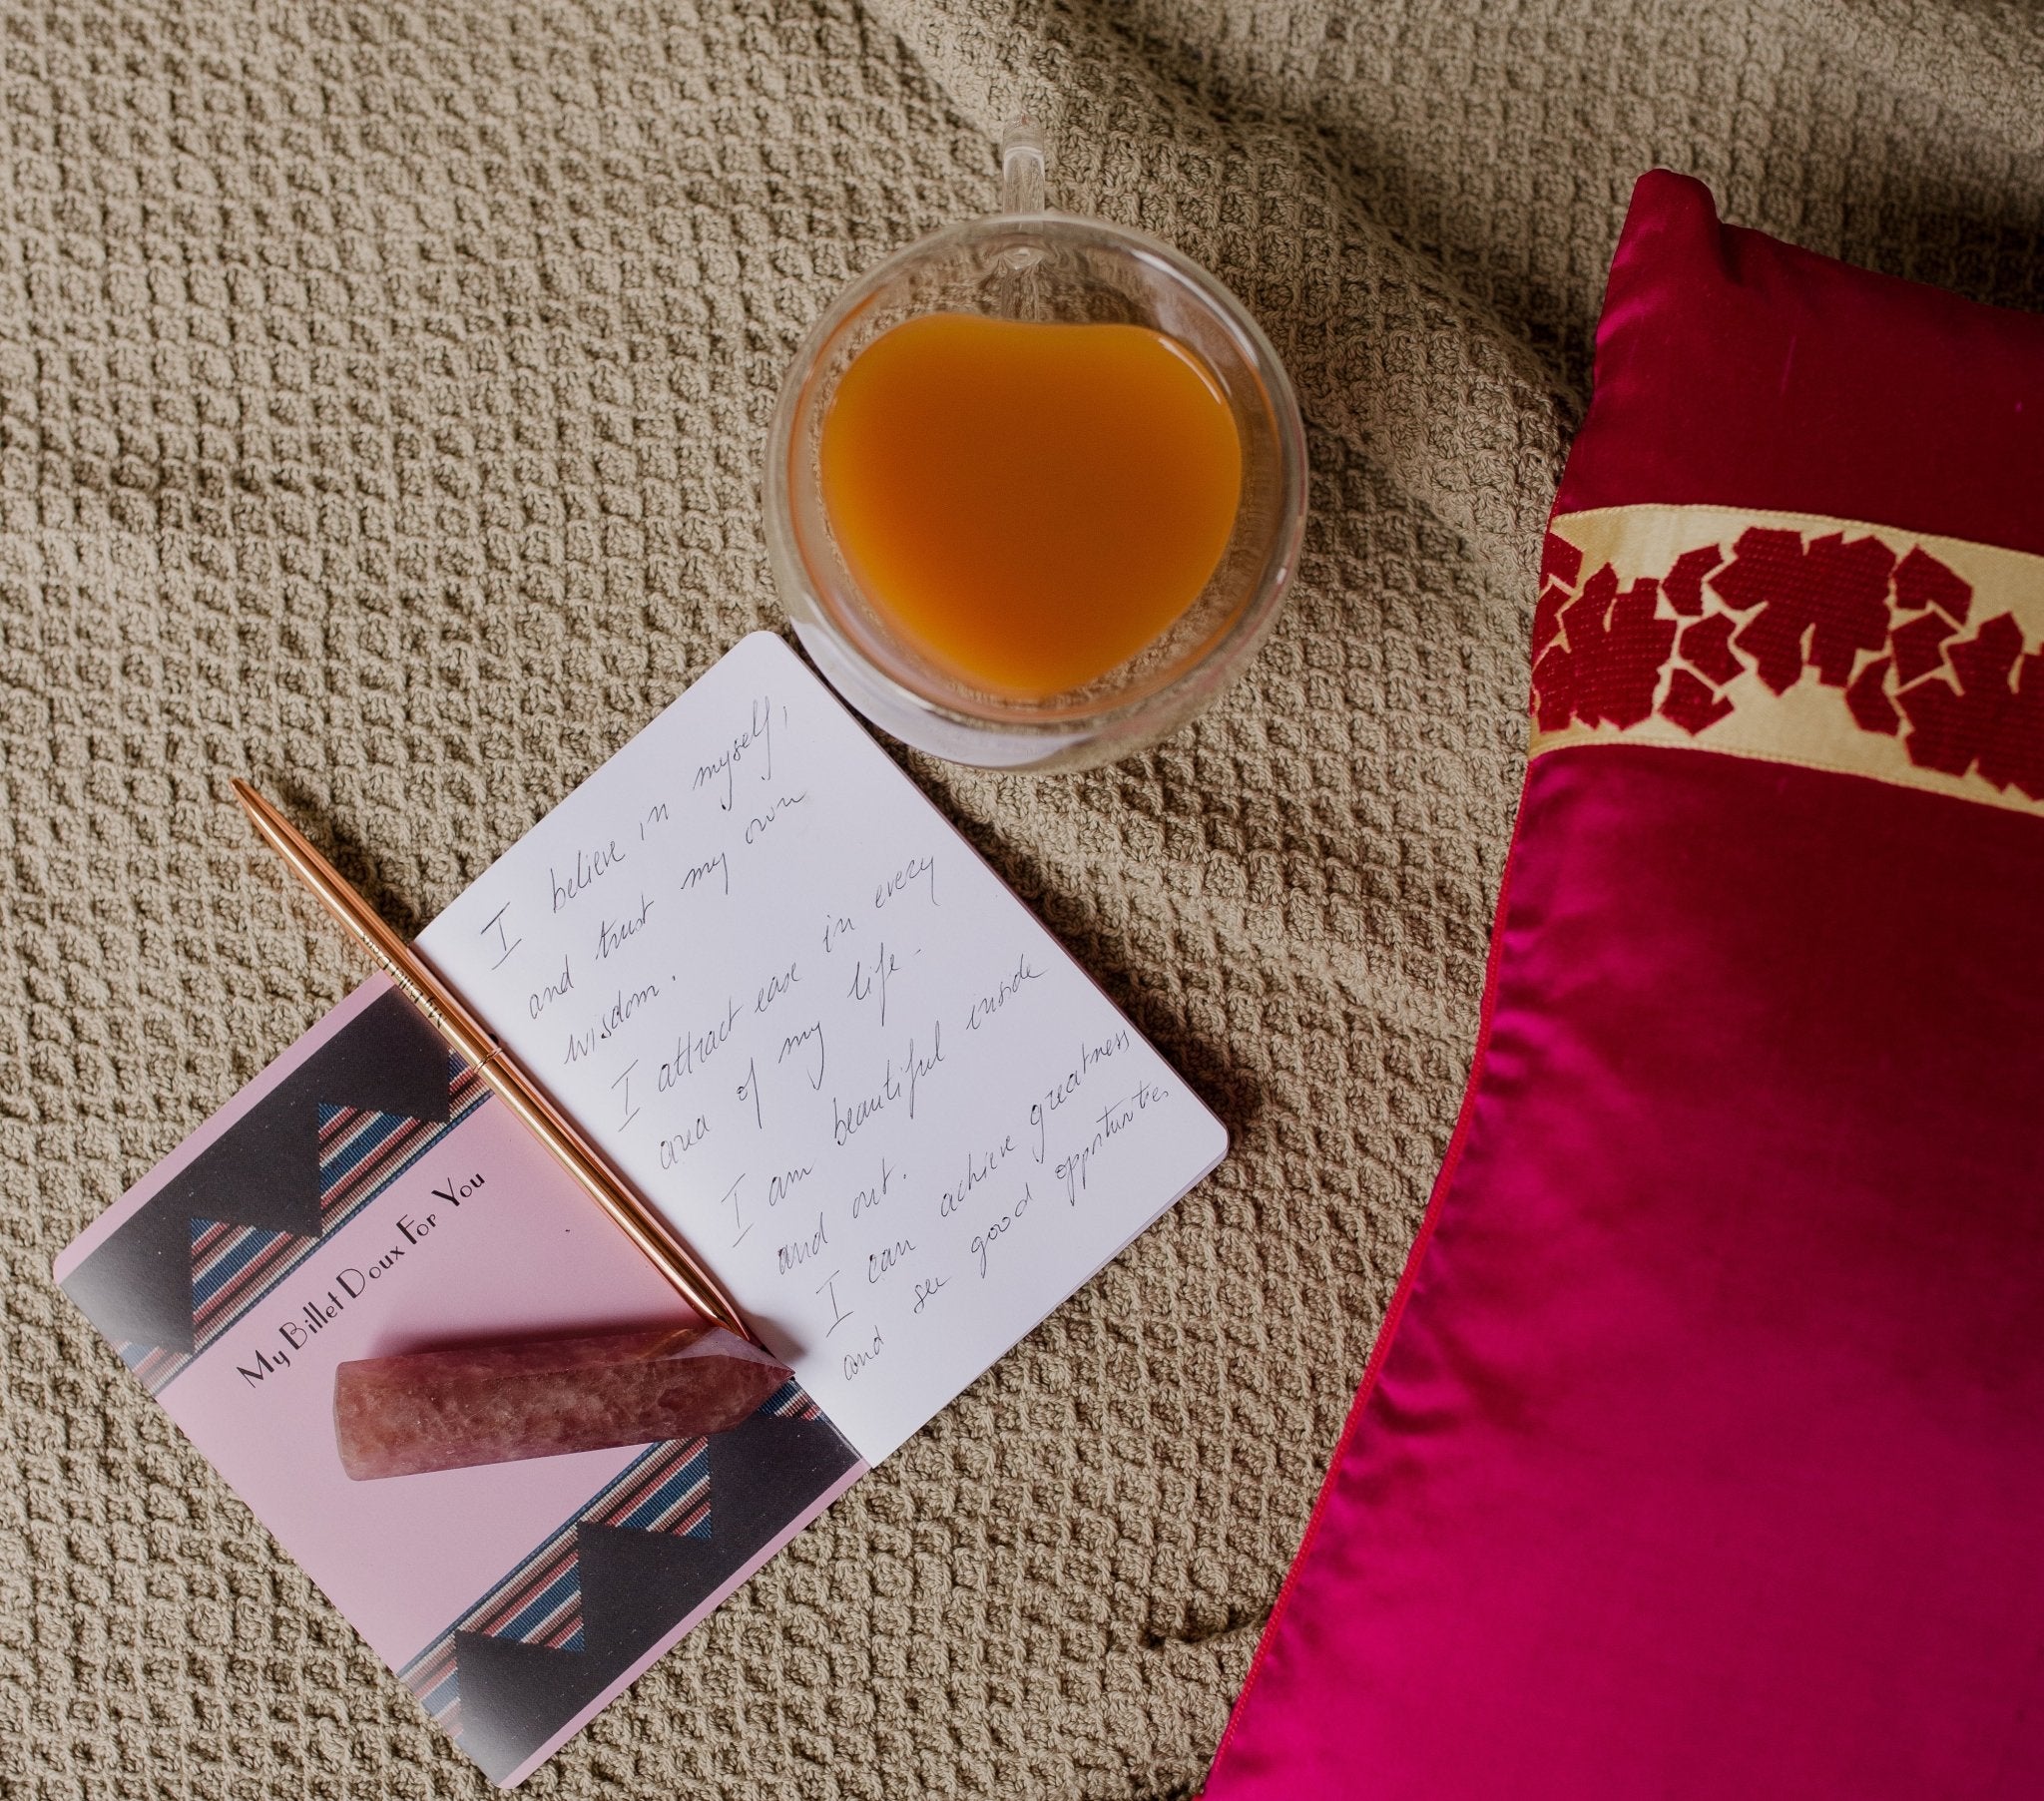 I believe in myself,
and trust my own
wisdom.
I attract ease in every
area of my life.
I am beautiful inside
and out.
I can achieve greatness
and see good opportunities
My Billet Doux For You